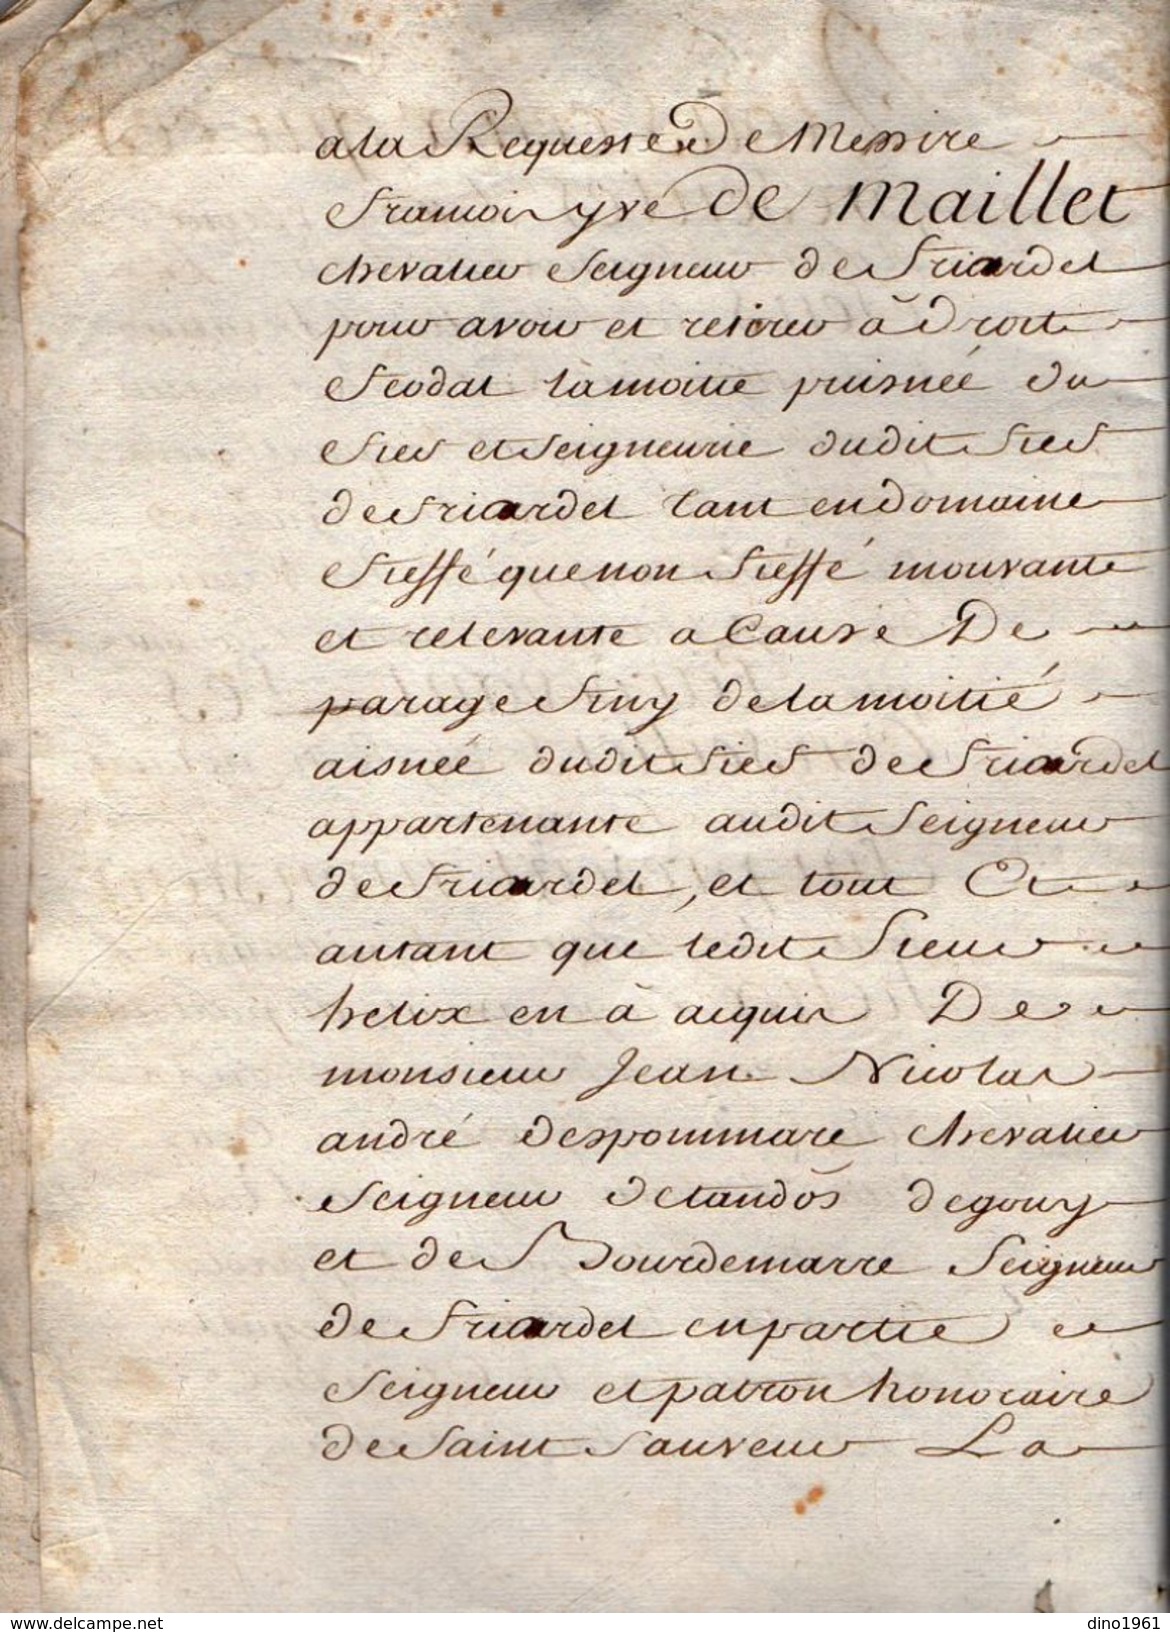 a la Requeste De Messire
francois yve De Maillet
chevalier seigneur de friardel
pour avoir et retirer à droit
feodal la moitie puisnée du
fief et seigneurie dudit fief
de friardel tant en domaine
fieffé que non fieffé mouvante
et relevante a Cause De
parage finy de la moitié
aisnée dudit fief de friardel
appartenante audit seigneur
de friardel, et tout Et
autant que ledit sieur
helix en à acquis De
monsieur Jean Nicolas
andré despommare chevalier
seigneur de landos de gouy
et de Bourdemarre seigneur
de friardel en partie
seigneur et patron honoraire
de saint sauveur La
www.delcampe.net
dino1961